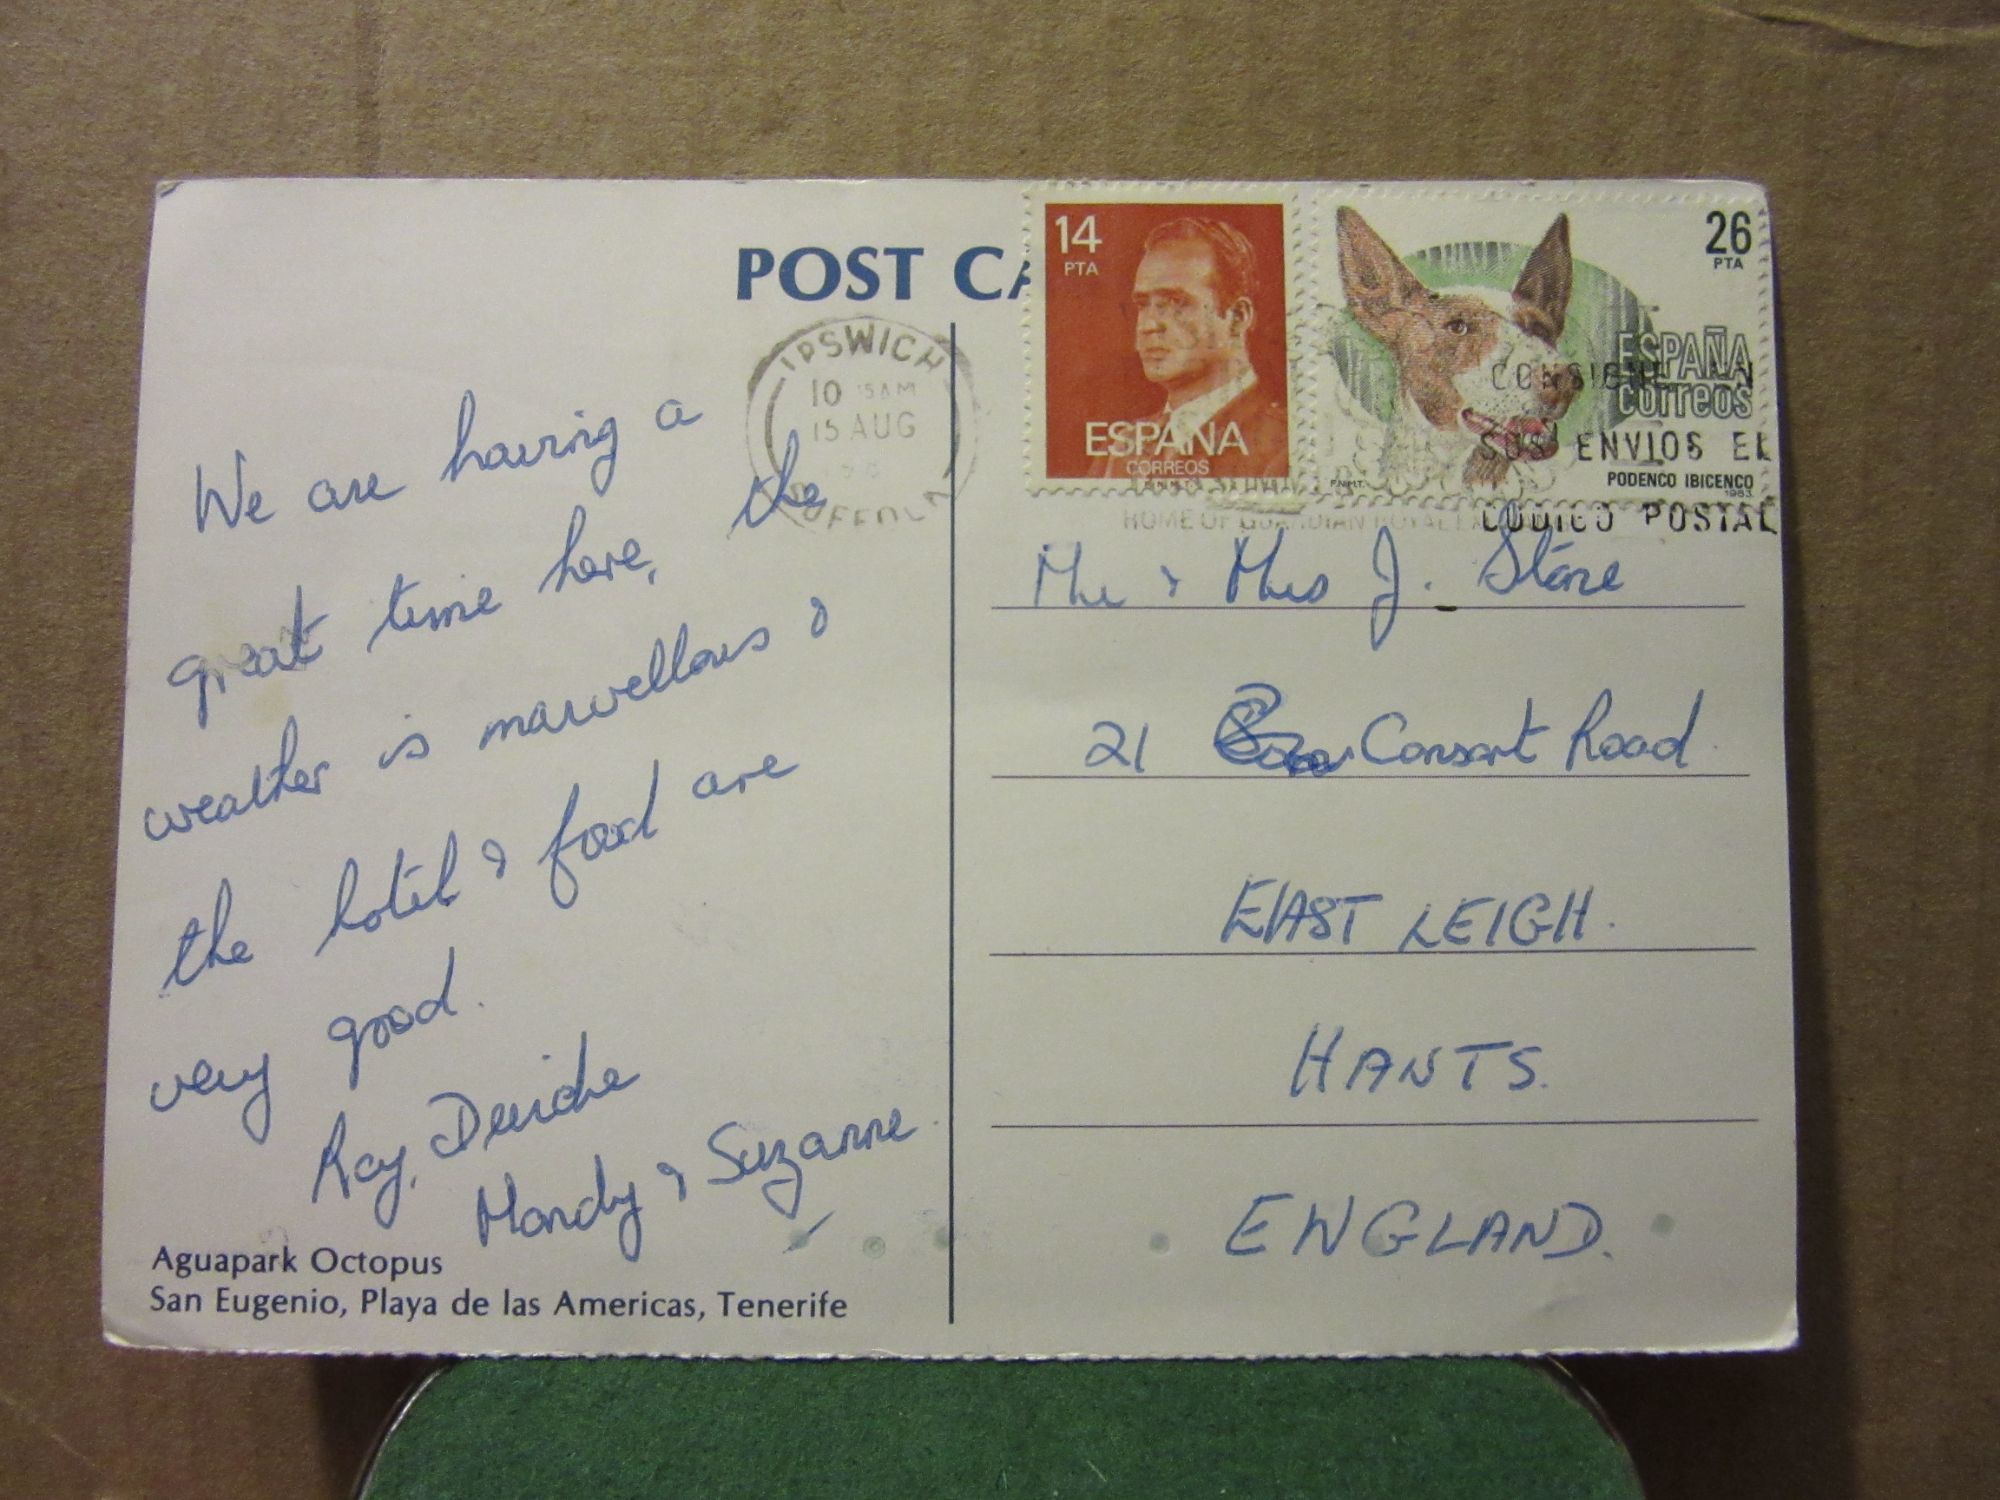 POST CA
14
PTA
ESPAÑA
CORREOS
26
PTA
ESPAÑA
correos
PODENCO IBICENCO
1983
F.N.M.T.
IPSWICH
10 15AM
15 AUG
SUFFOLK
CONSIGNE EN
SUS ENVIOS EL
CODIGO POSTAL
HOME OF GUARDIAN ROYAL
We are having a
great time here, the
weather is marvellous &
the hotel & food are
very good.
Ray, Deirdre
Mandy & Suzanne.
Aguapark Octopus
San Eugenio, Playa de las Americas, Tenerife
Mr & Mrs J. Stone
21 Consort Road
EAST LEIGH.
HANTS.
ENGLAND.